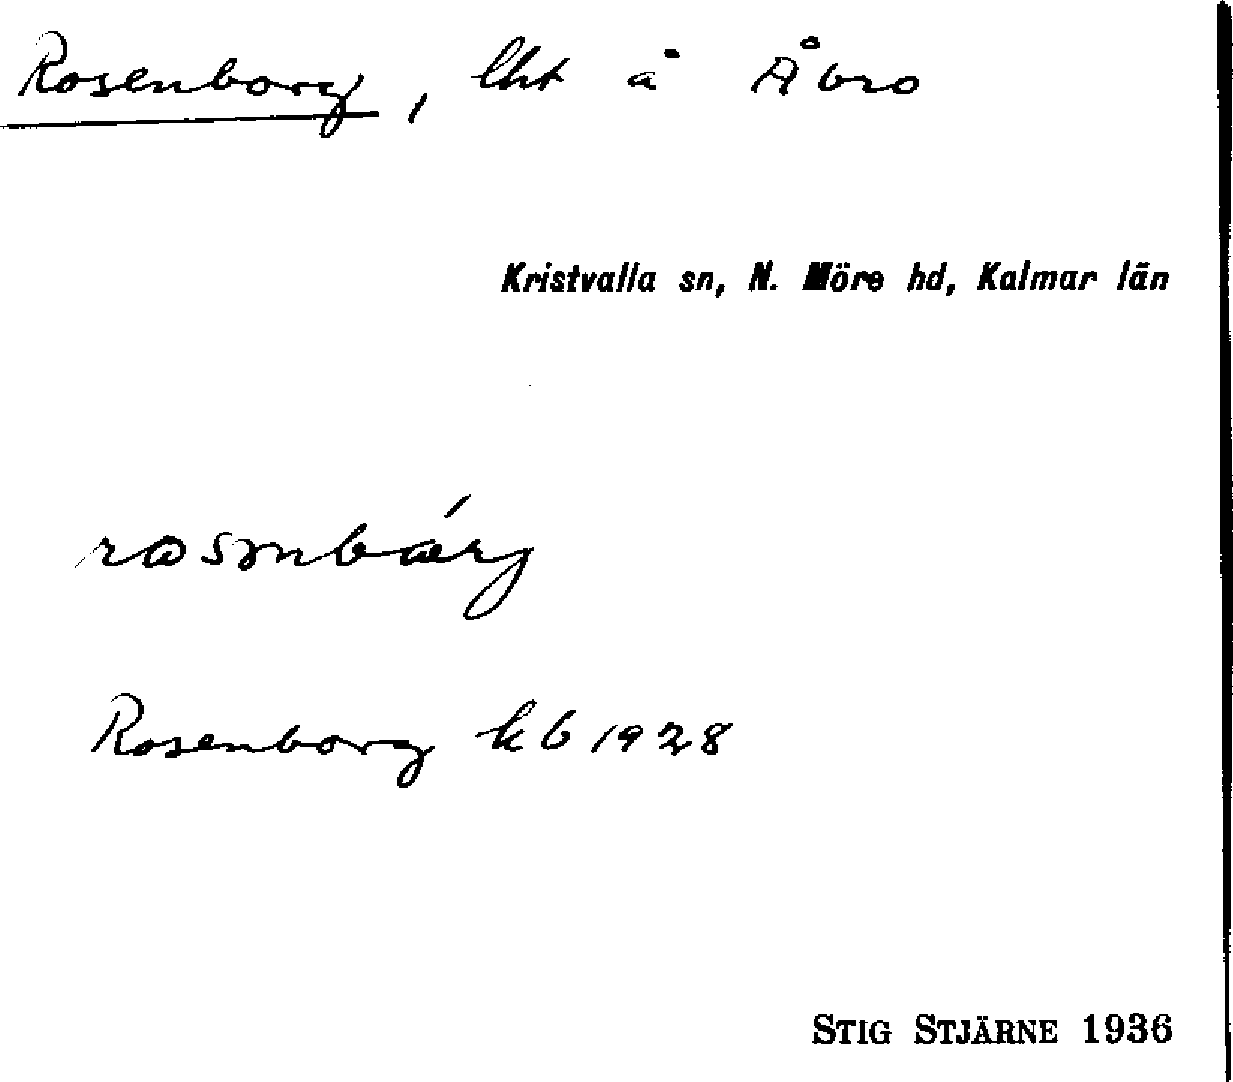 Rosenborg, lht å Åbro
Kristvalla sn, N. Möre hd, Kalmar län
Rosenborg kb 1928
STIG STJÄRNE 1936